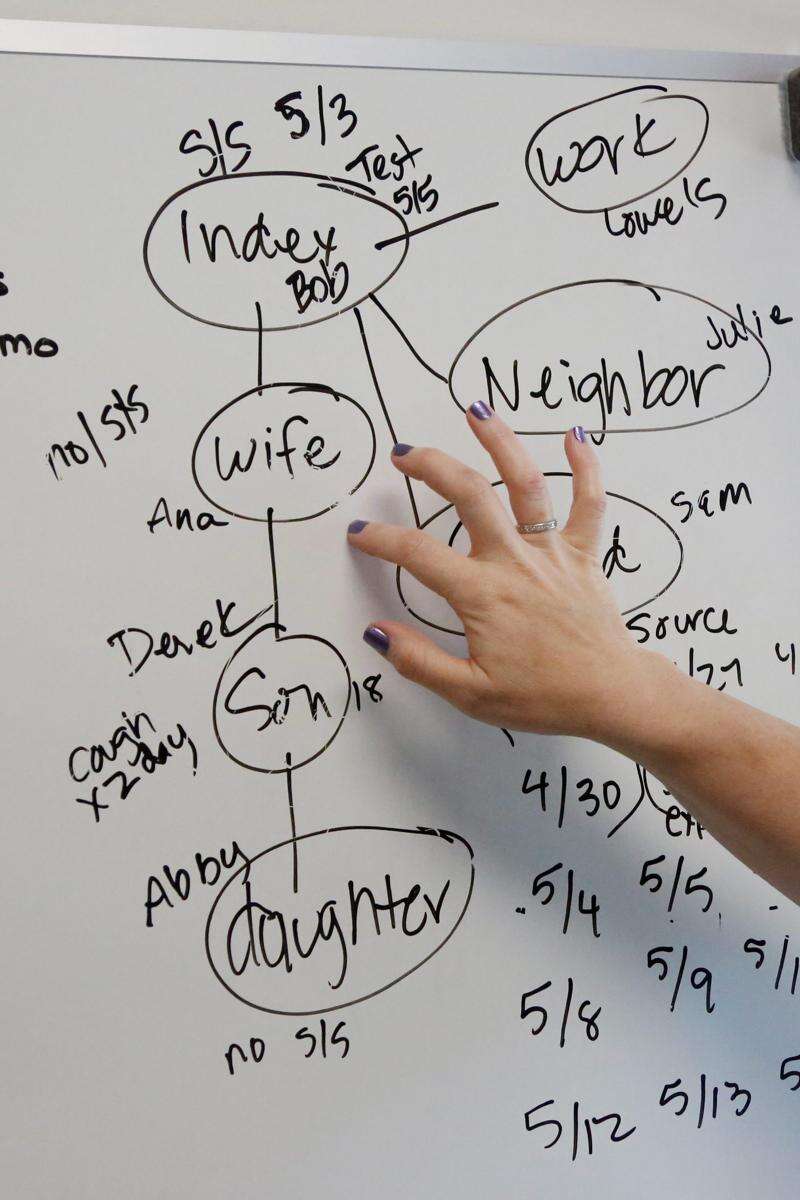 S/S 5/3
Test
5/5
Index
Bob
work
Lowe's
mo
Neighbor
Julie
no/S/S
wife
Ana
Sam
source
Derek
Son
18
cough
x2 day
4/30
5/4 5/5
Abby
daughter
5/8 5/9
no S/S
5/12 5/13